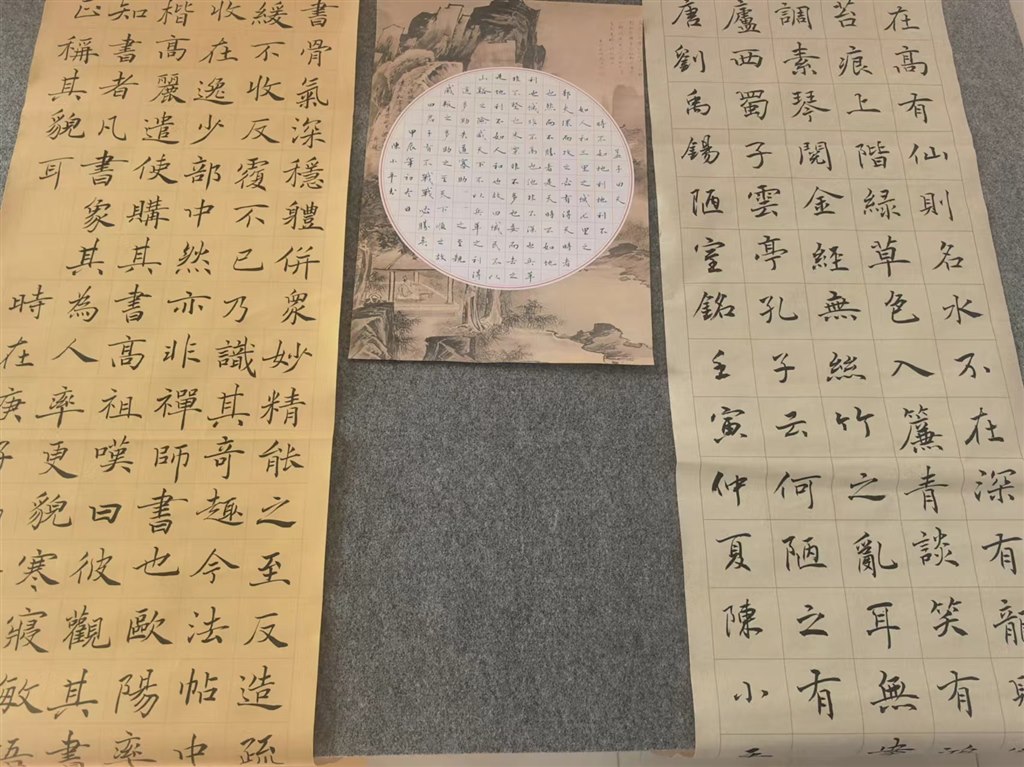 在高有仙則名水不在深有龍
苔痕上階緑草色入簾青談笑有
調素琴閱金經無絲竹之亂耳無
廬西蜀子雲亭孔子云何陋之有
唐劉禹錫陋室銘壬寅仲夏陳小
孟子曰天
時不如地利地利不
如人和三里之城七里之
郭夫環而攻之必有得天時者
也然而不勝者是天時不如地
利也城非不高也池非不深也兵革
非不堅也米粟非不多也委而去之
是地利不如人和也故曰域民不以
山谿之險威天下不以兵革之利得
道多助失道寡助之至親
戚叛之多助之至天下順之故
曰君子有不戰戰必勝矣
甲辰年初冬日
陳小平書
書骨氣深穩體併衆妙精能之至反造疏
緩不收反覆不已乃識其奇趣今法帖中
收在逸少部中然亦非禪師書也歐陽率
楷高麗遣使購其書高祖嘆曰彼觀其書
知書者凡書象其為人率更貌寒寢敏悟
正稱其貌耳
時在庚子